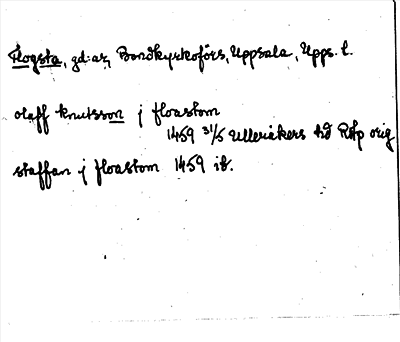 Flogsta, gd:ar, Bondkyrkoförs, Uppsala, Upps. l.
olaff knutsson j floastom
1459 31/5 Ulleråkers hd RAp orig
staffan j floastom 1459 ib.